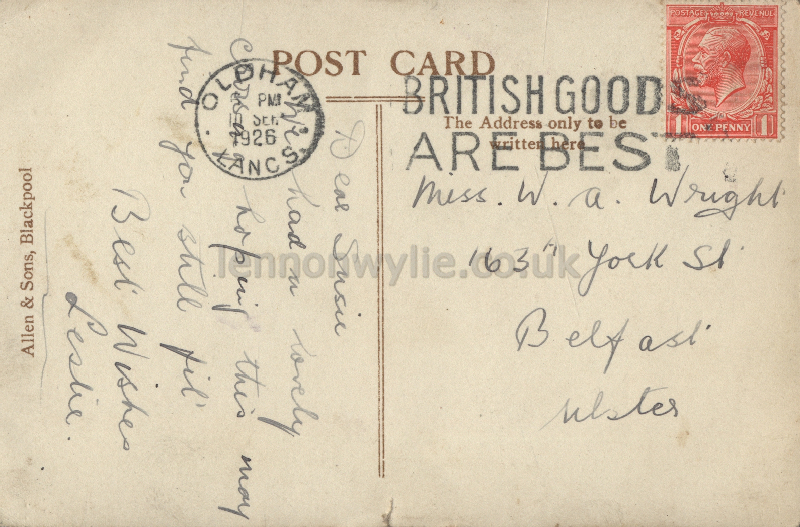 POST CARD
OLDHAM
PM
SEP
1926
LANCS.
BRITISH GOODS
ARE BEST
POSTAGE REVENUE
1 ONE PENNY 1
The Address only to be
written here
Miss. W. a. Wright
163 York St
Belfast
Ulster
Dear Susie
had a lovely
hoping this may
find you still fit
Best Wishes
Leslie.
Allen & Sons, Blackpool
lennonwylie.co.uk